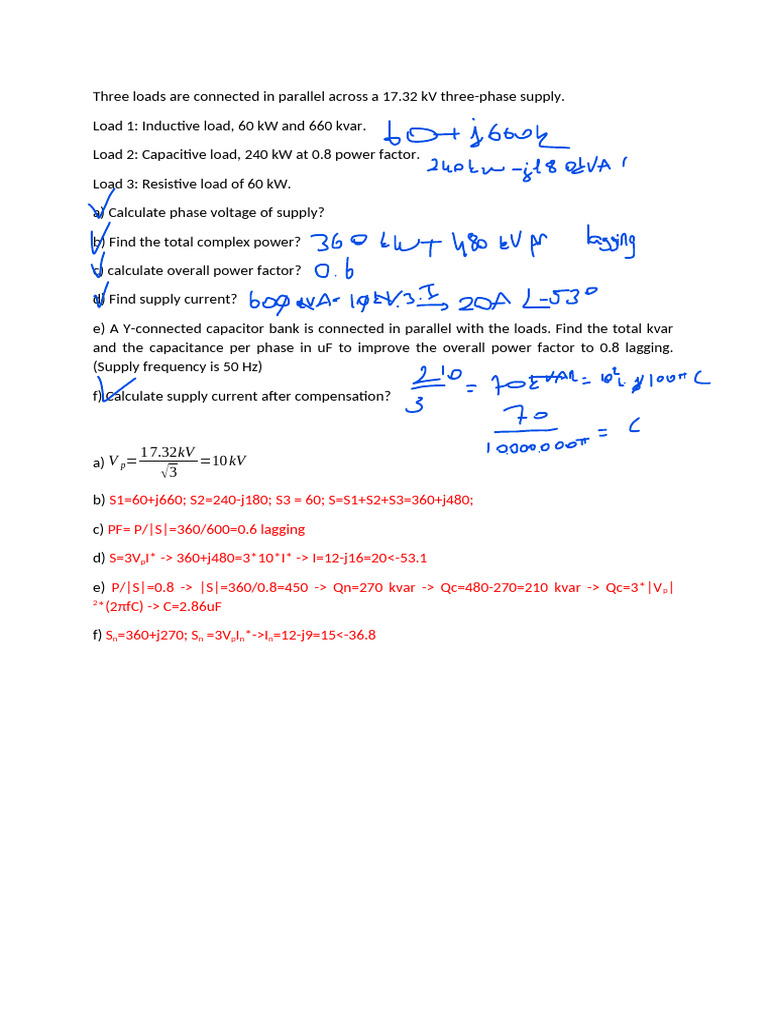 Three loads are connected in parallel across a 17.32 kV three-phase supply.
Load 1: Inductive load, 60 kW and 660 kvar. 60+j660k
Load 2: Capacitive load, 240 kW at 0.8 power factor. 240kw-j180kVAr
Load 3: Resistive load of 60 kW.
a) Calculate phase voltage of supply?
b) Find the total complex power? 360 kW+ 480 kVAr lagging
c) calculate overall power factor? 0.6
d) Find supply current? 600 kVA=10kV.3.I → 20A ∠-53°
e) A Y-connected capacitor bank is connected in parallel with the loads. Find the total kvar
and the capacitance per phase in uF to improve the overall power factor to 0.8 lagging.
(Supply frequency is 50 Hz)
f) Calculate supply current after compensation?
210/3 = 70kVAR = 100π C
70/10000000π = C
a) Vₚ=17.32kV/√3=10kV
b) S1=60+j660; S2=240-j180; S3 = 60; S=S1+S2+S3=360+j480;
c) PF= P/|S|=360/600=0.6 lagging
d) S=3VₚI* -> 360+j480=3*10*I* -> I=12-j16=20<-53.1
e) P/|S|=0.8 -> |S|=360/0.8=450 -> Qn=270 kvar -> Qc=480-270=210 kvar -> Qc=3*|Vₚ|
²*(2πfC) -> C=2.86uF
f) Sₙ=360+j270; Sₙ =3VₚIₙ*->Iₙ=12-j9=15<-36.8